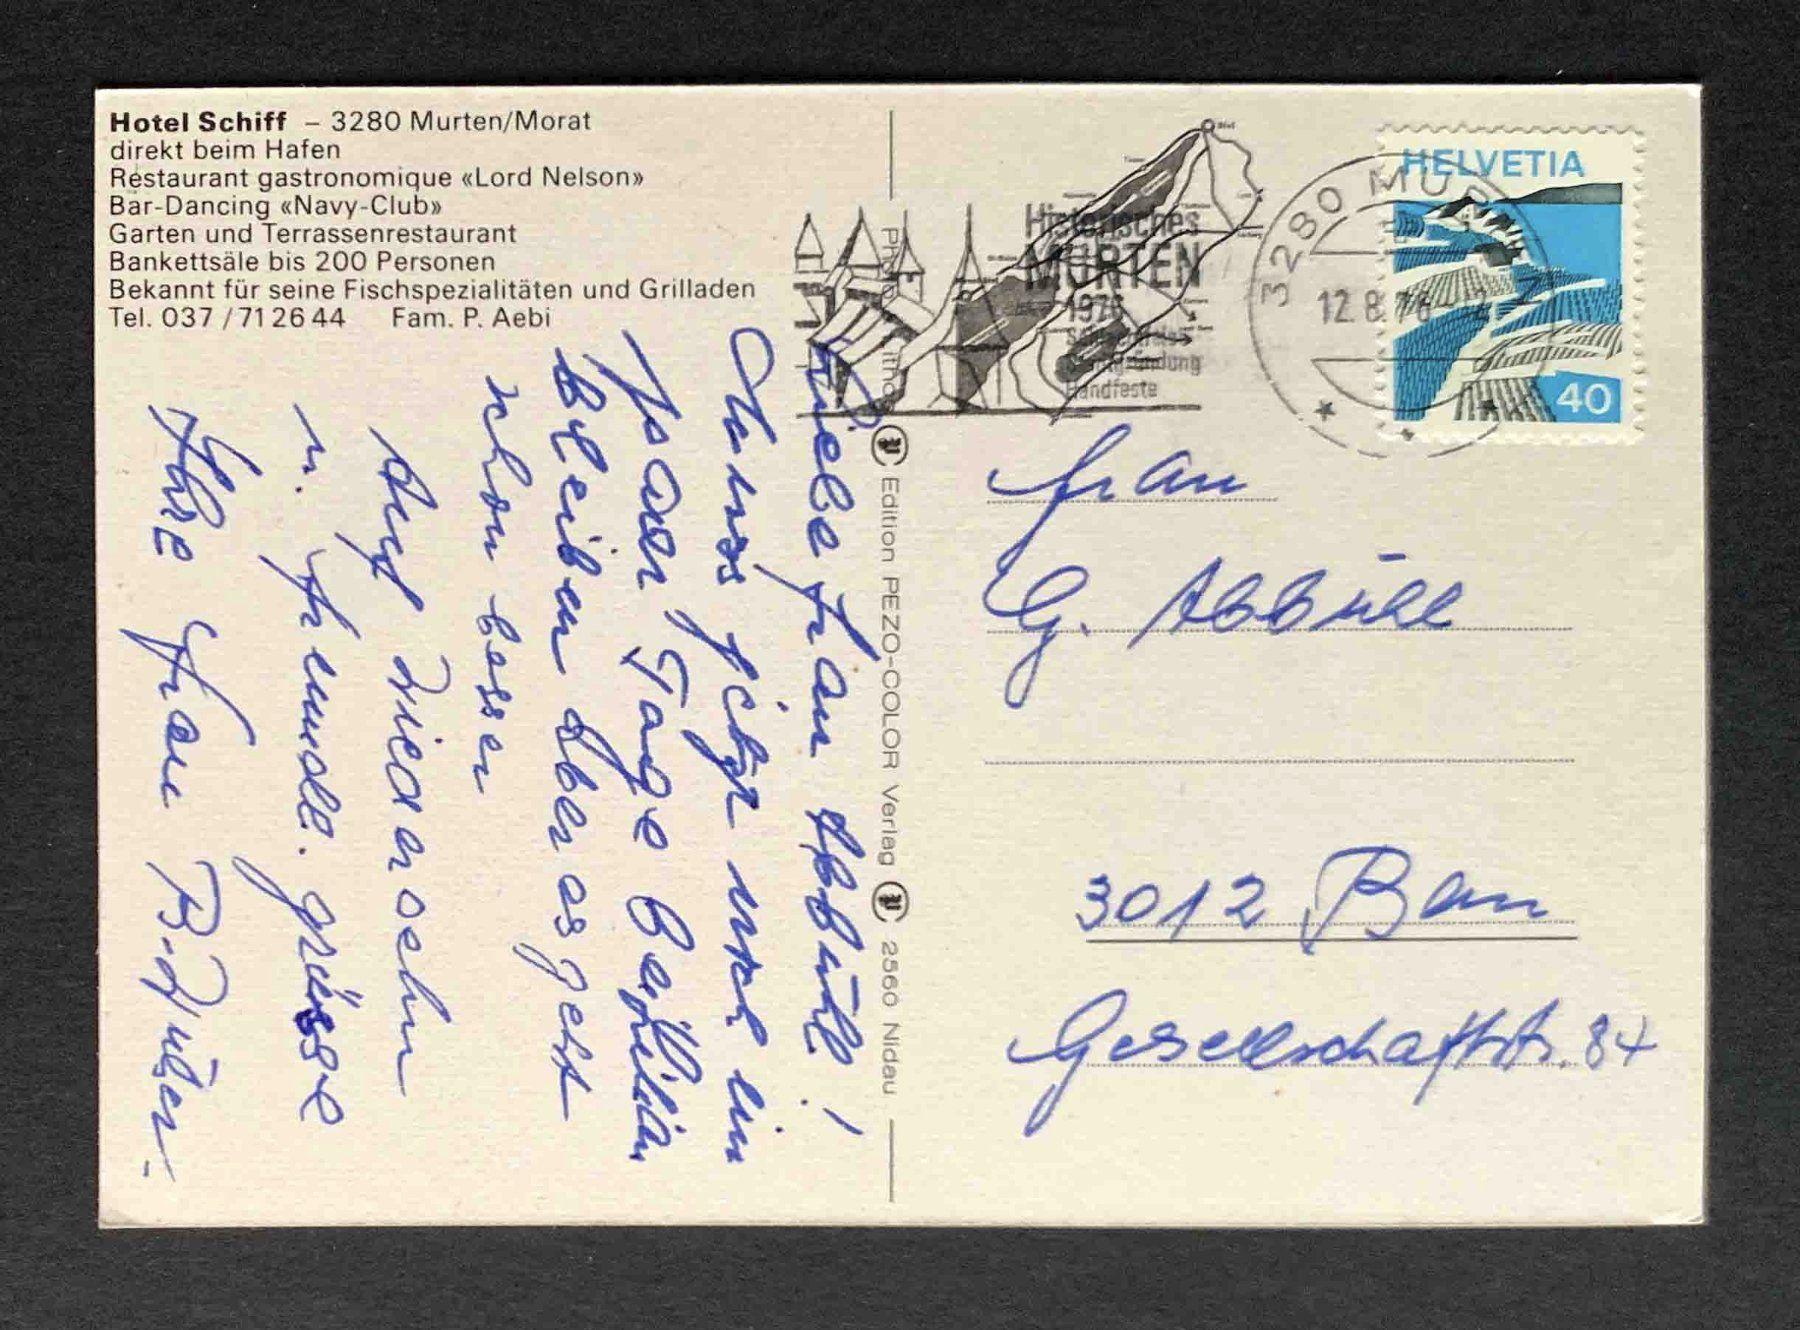 Hotel Schiff – 3280 Murten/Morat
direkt beim Hafen
Restaurant gastronomique «Lord Nelson»
Bar-Dancing «Navy-Club»
Garten und Terrassenrestaurant
Bankettsäle bis 200 Personen
Bekannt für seine Fischspezialitäten und Grilladen
Tel. 037 / 71 26 44 Fam. P. Aebi
Liebe Frau Abbühl!
Muss jetzt noch ein
paar Tage
bleiben aber es geht
schon besser
Auf Wiedersehn
u. freundl. grüsse
Ihre Frau
Edition PEZO-COLOR Verlag
2560 Nidau
Historisches
MURTEN
1976
Handfeste
3280 MURTEN
12.8.76
HELVETIA
40
Frau
G. Abbühl
3012 Bern
Gesellschaftsstr. 84